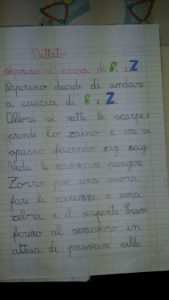 Dettato
Paperino a caccia di S e Z
Paperino decide di andare
a caccia di S e Z.
Allora si mette le scarpe
prende lo zaino e va a
spasso facendo zig zag.
Vede le zanzare pungere
Zorro poi una suora
fare le carezze a una
zebra e il serpente Sison
fermo al semaforo in
attesa di passare sulle